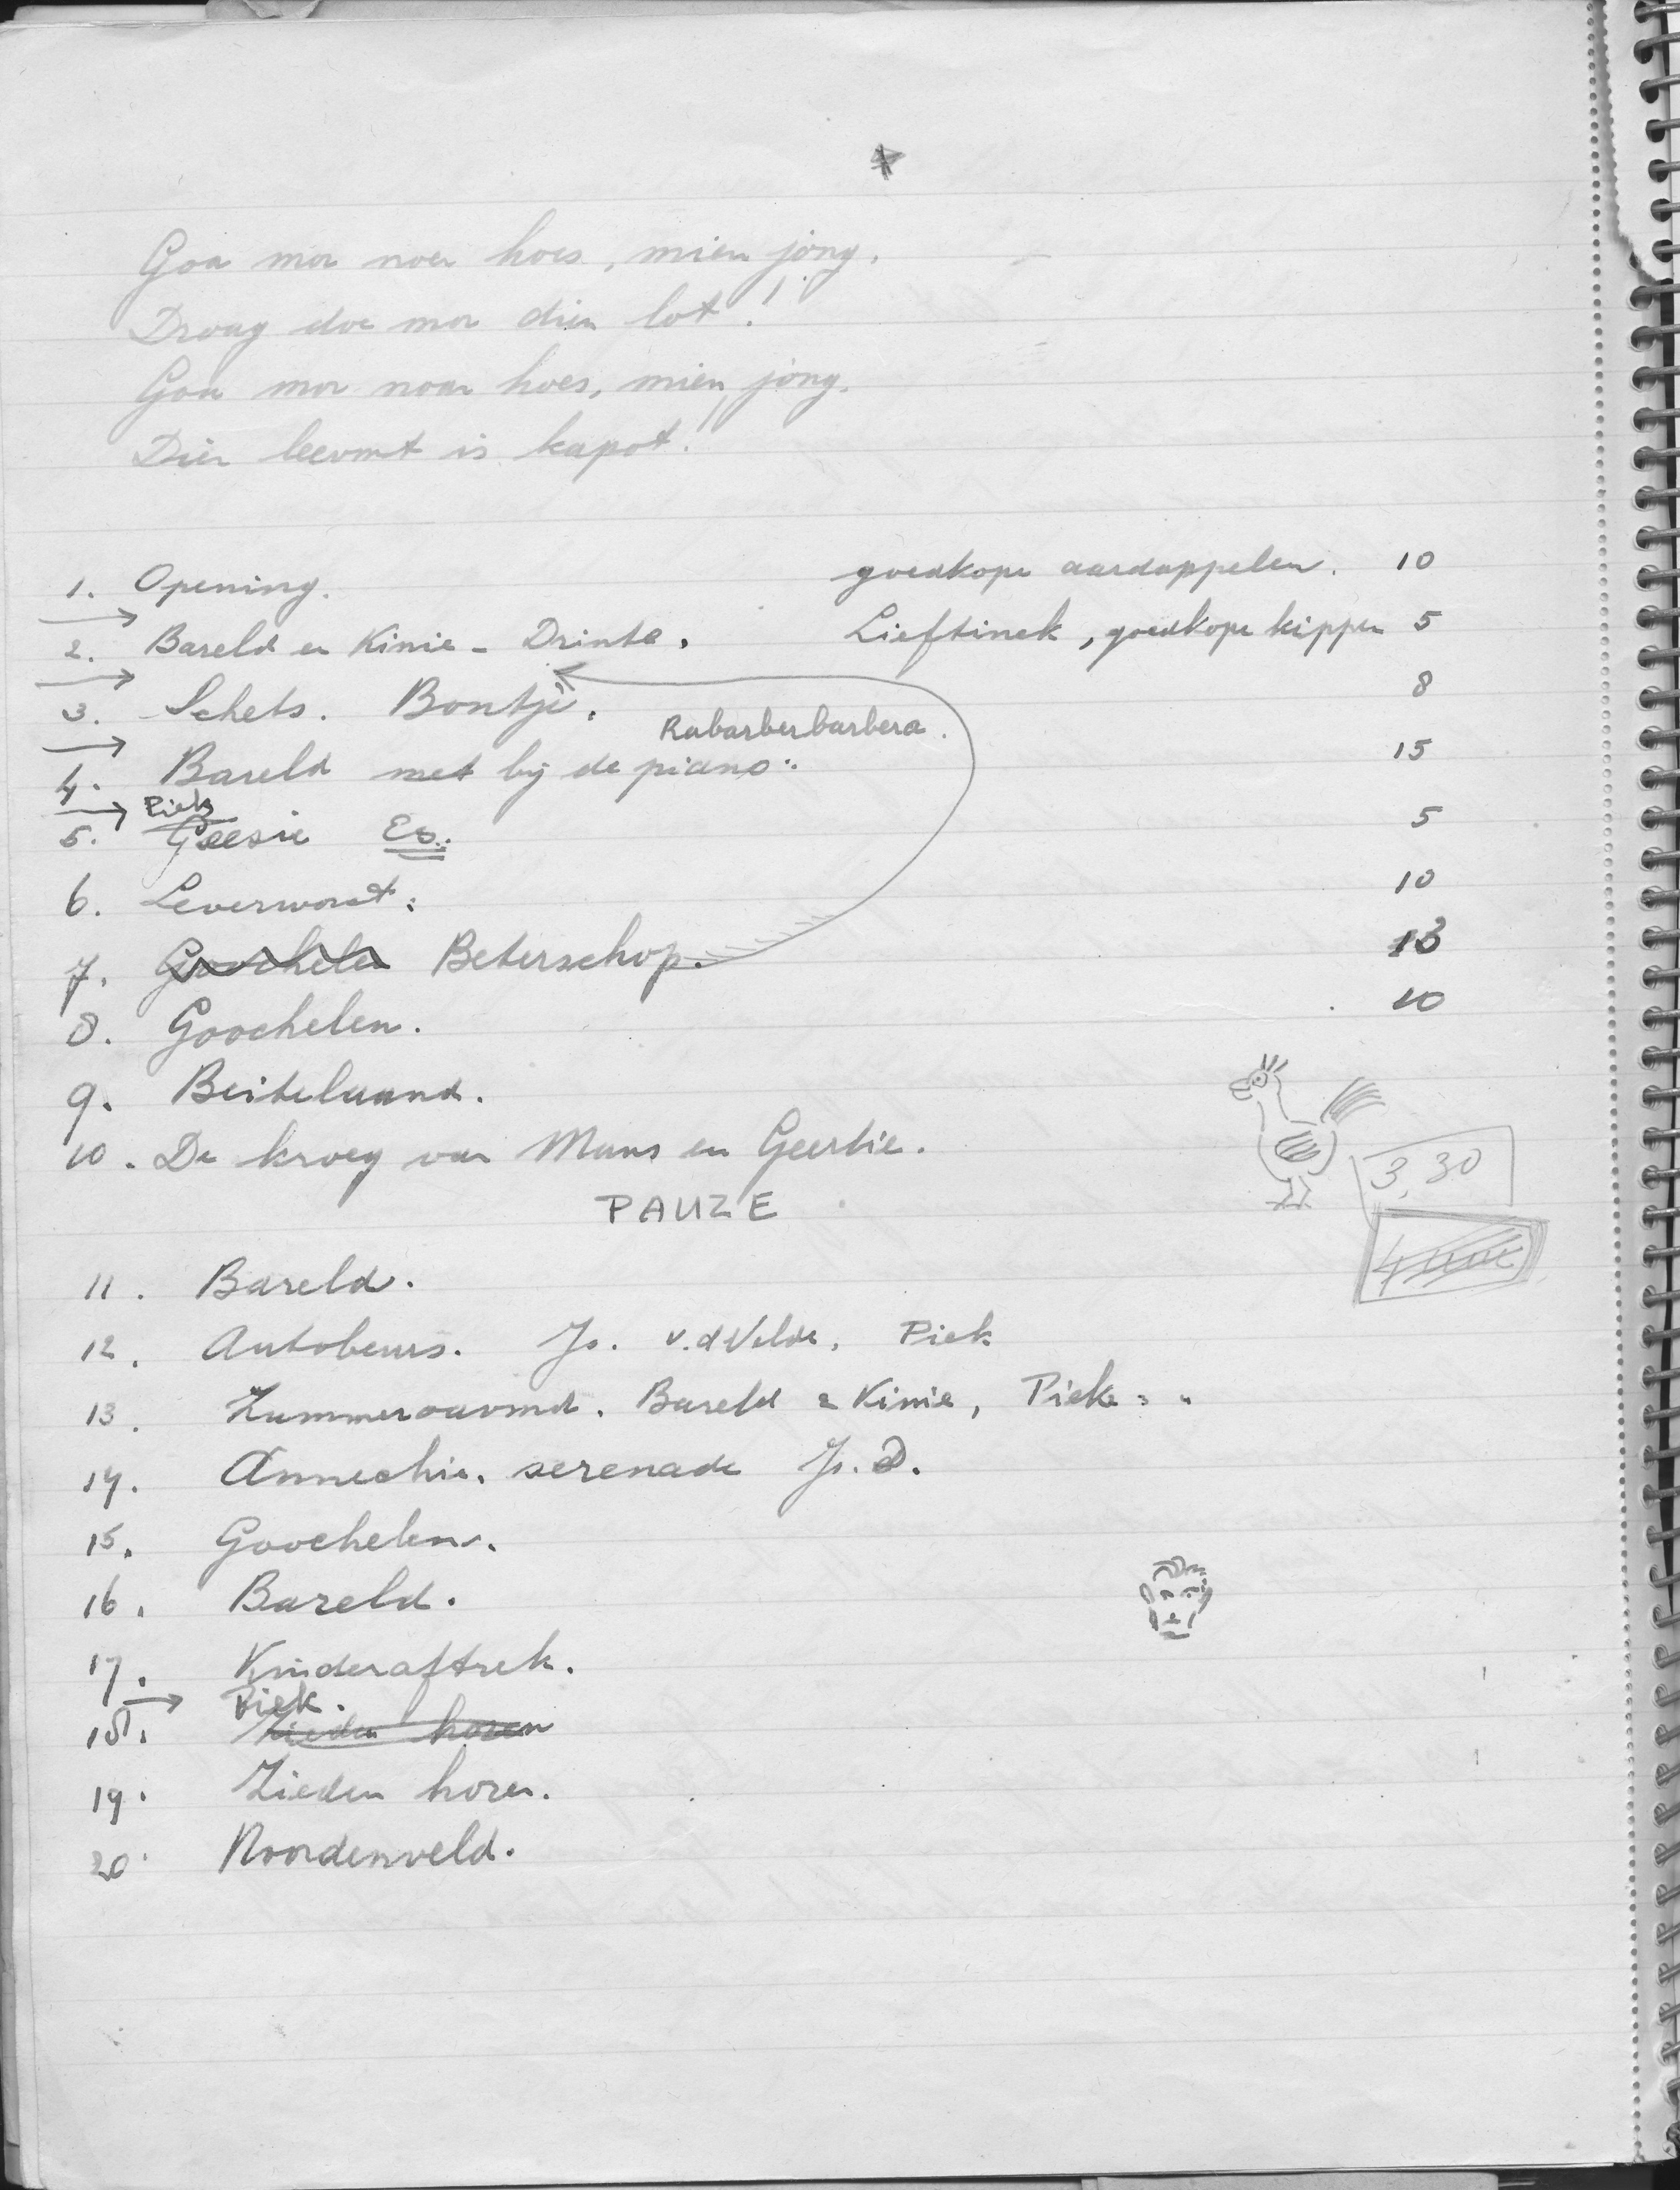 Goa mor noar hoes, mien jong,
Droag doe mor dien lot!
Goa mor noar hoes, mien jong,
Dien leevmt is kapot!
1. Opening. goedkope aardappelen. 10
2. Bareld en Kinie - Drinte. Lieftinck, goedkope kippen 5
3. Schets. Bontje. 8
Rabarberbarbera.
4. Bareld met bij de piano: 15
Piek
5. Geesie Es. 5
6. Leverworst: 10
7. Goochelen Beterschop. 13
8. Goochelen. 10
9. Beitelaand.
10. De kroeg van Mans en Geertie.
3.30
PAUZE
11. Bareld.
12. Autobeurs. Js. v.d Velde, Piek
13. Zummeroavmd. Bareld & Kinie, Piek
14. Annechie. serenade Js. D.
15. Goochelen.
16. Bareld.
17. Kinderaftrek.
Piek.
18. Zieden horen
19. Zieden horen.
20. Noordenveld.